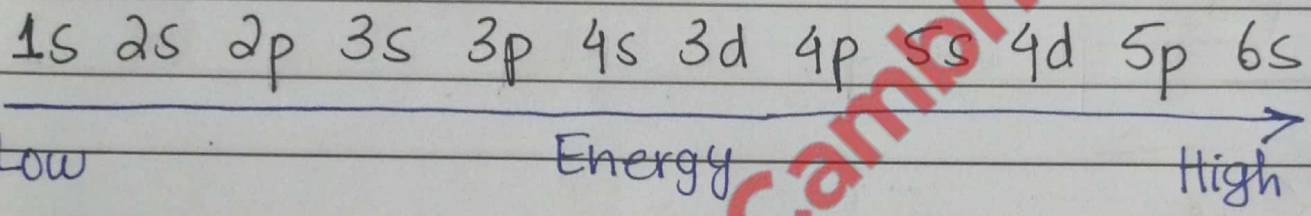 1s 2s 2p 3s 3p 4s 3d 4p 5s 4d 5p 6s
Low Energy High
Camb